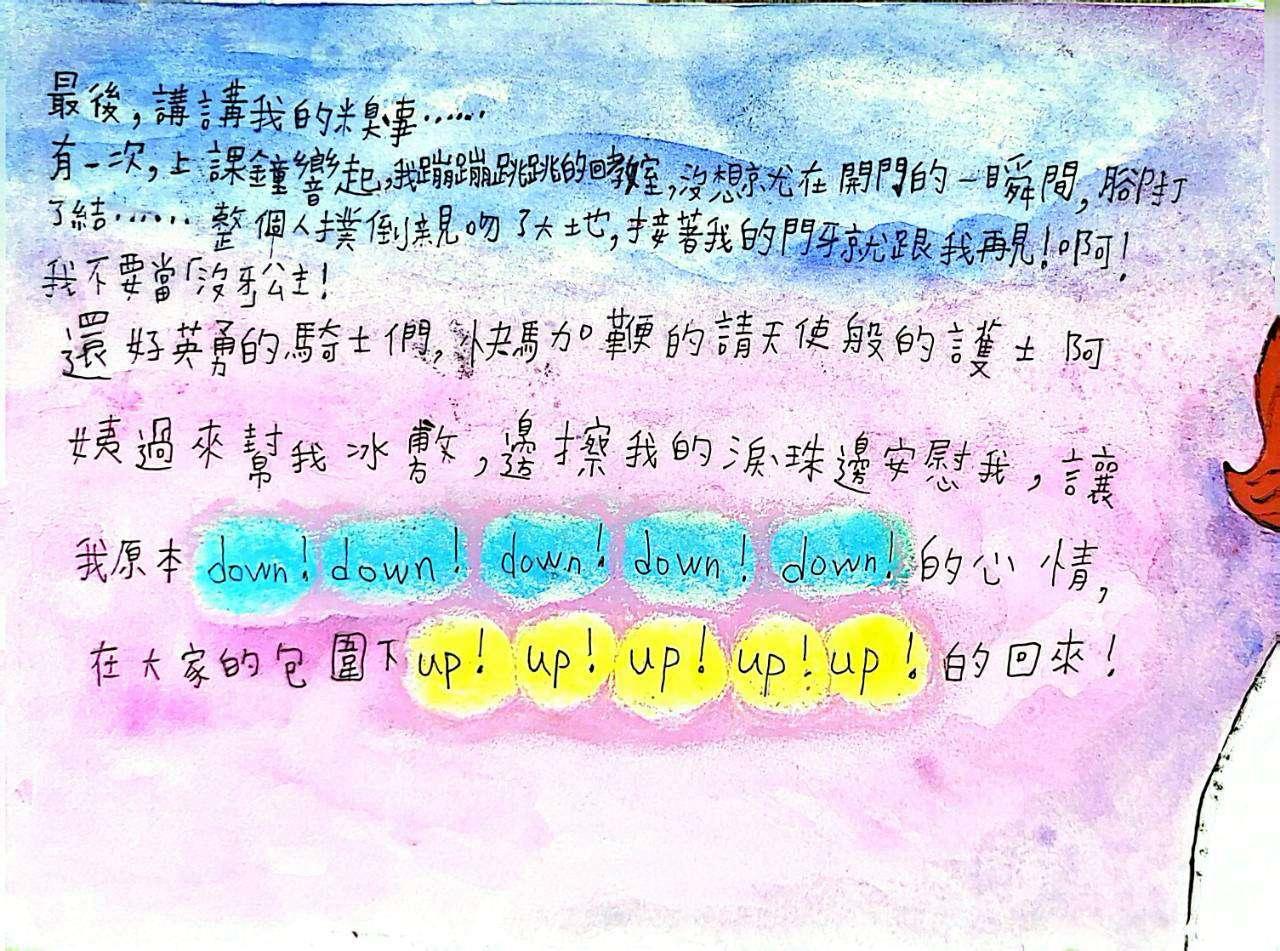 最後,講講我的糗事……
有一次,上課鐘響起,我蹦蹦跳跳的回教室,沒想就在開門的一瞬間,腳打
了結……整個人撲倒親吻了大地,接著我的門牙就跟我再見!啊!
我不要當「沒牙」公主!
還好英勇的騎士們,快馬加鞭的請天使般的護士阿
姨過來幫我冰敷,邊擦我的淚珠邊安慰我,讓
我原本down!down!down!down!down!的心情,
在大家的包圍下up!up!up!up!up!的回來!